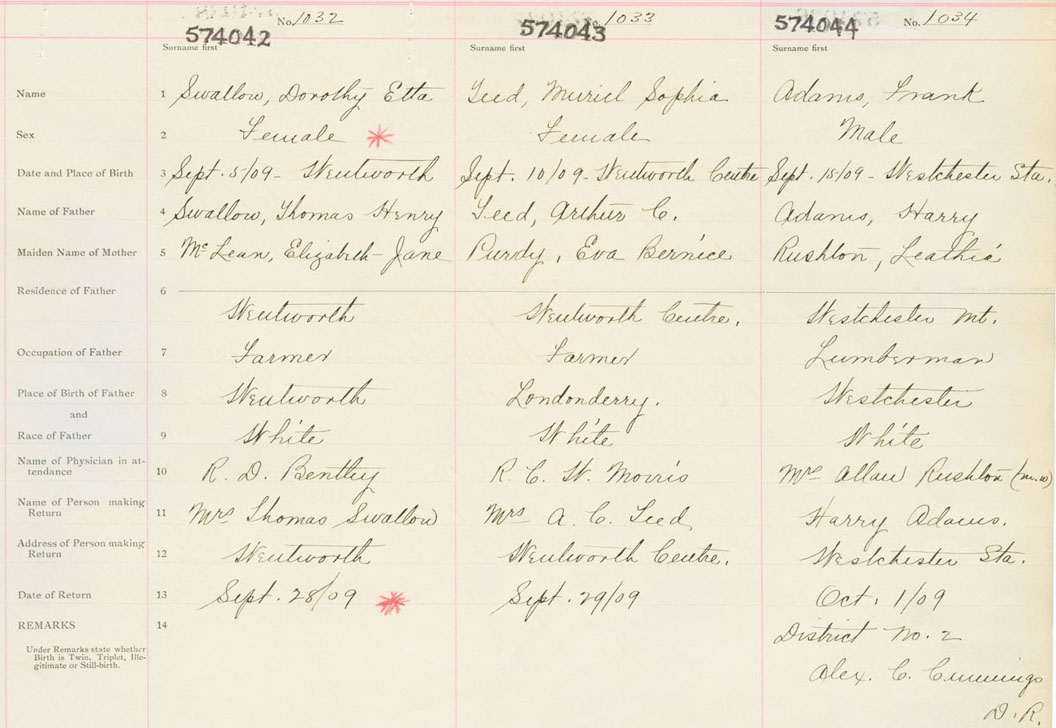 No. 1032 No. 1033 No. 1034
574042 574043 574044
Surname first Surname first Surname first
Name 1 Swallow, Dorothy Etta Teed, Muriel Sophia Adams, Frank
Sex 2 Female Female Male
Date and Place of Birth 3 Sept. 5/09 - Wentworth Sept. 10/09 - Wentworth Centre Sept. 15/09 - Westchester Sta.
Name of Father 4 Swallow, Thomas Henry Teed, Arthur C. Adams, Harry
Maiden Name of Mother 5 McLean, Elizabeth Jane Purdy, Eva Bernice Rushton, Leathia
Residence of Father 6
Wentworth Wentworth Centre. Westchester Mt.
Occupation of Father 7 Farmer Farmer Lumberman
Place of Birth of Father 8 Wentworth Londonderry. Westchester
and
Race of Father 9 White White White
Name of Physician in at-
tendance 10 R. D. Bentley R. C. W. Morris Mrs Allan Rushton (m.w)
Name of Person making
Return 11 Mrs Thomas Swallow Mrs A. C. Teed Harry Adams.
Address of Person making
Return 12 Wentworth Wentworth Centre. Westchester Sta.
Date of Return 13 Sept. 28/09 Sept. 29/09 Oct. 1/09
REMARKS 14 District No. 2
Under Remarks state whether
Birth is Twin, Triplet, Ille-
gitimate or Still-birth.
Alex. C. Cummings
D.R.